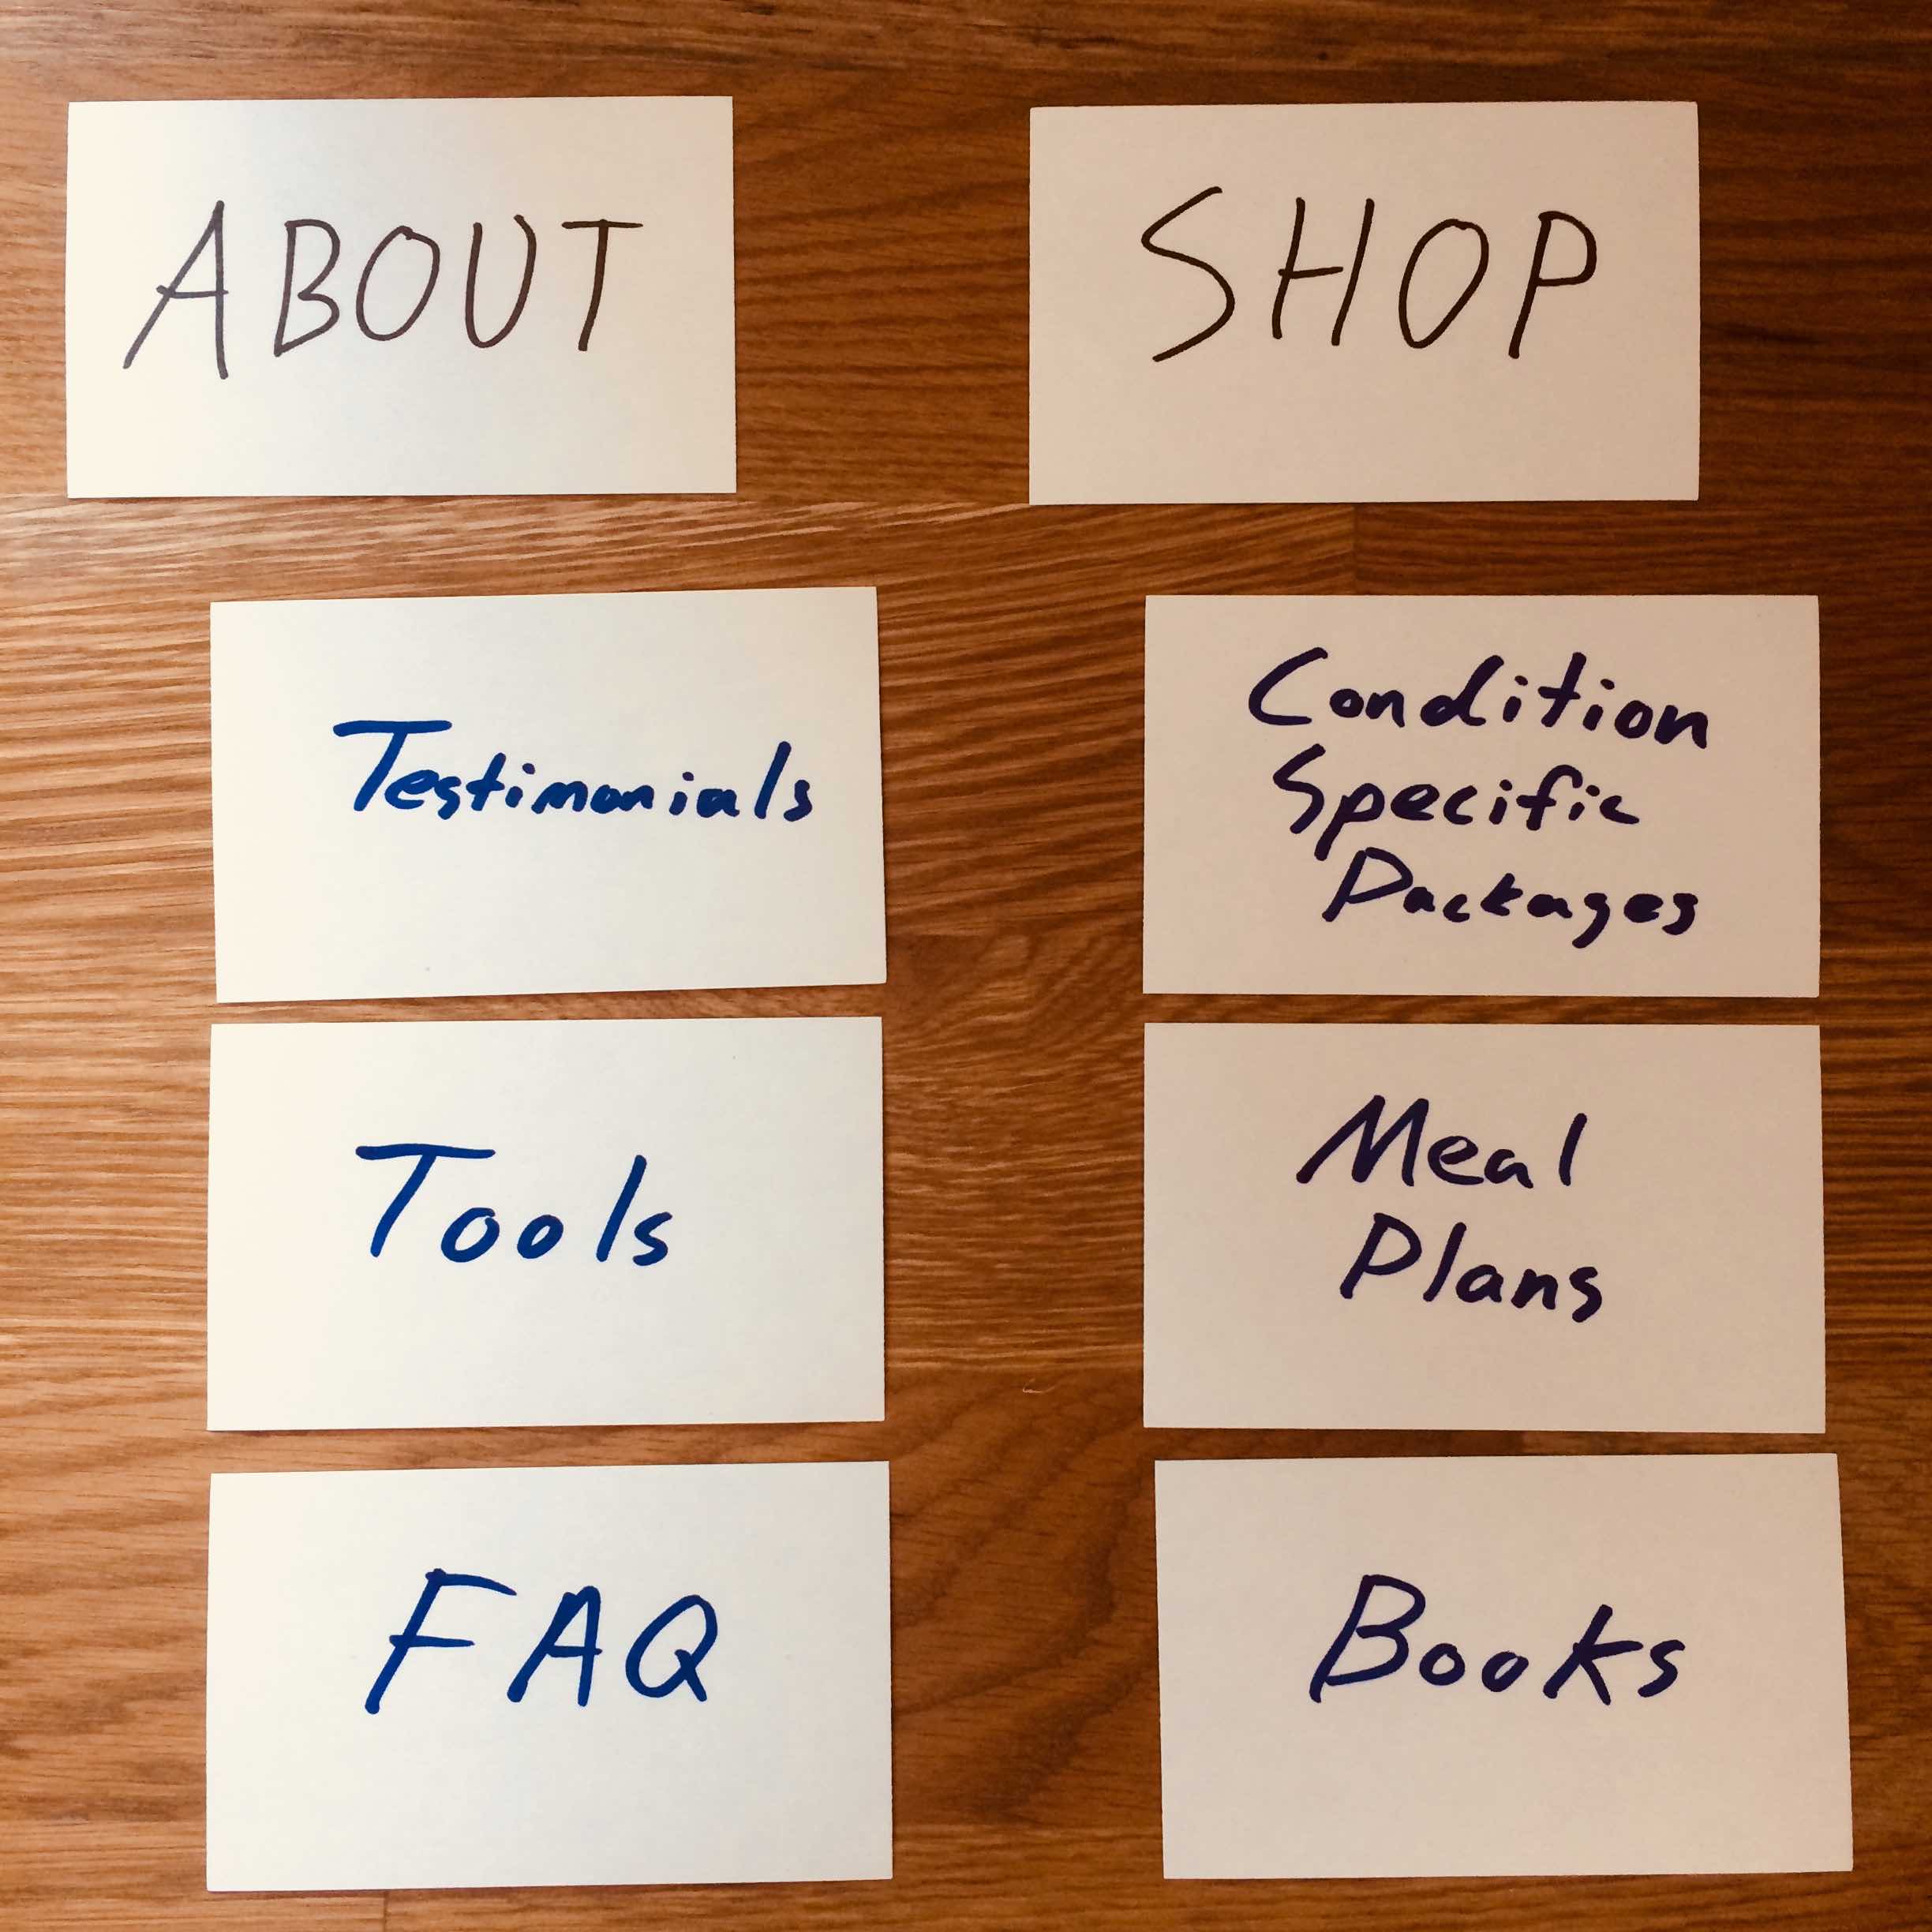 ABOUT
Testimonials
Tools
FAQ
SHOP
Condition
Specific
Packages
Meal
Plans
Books